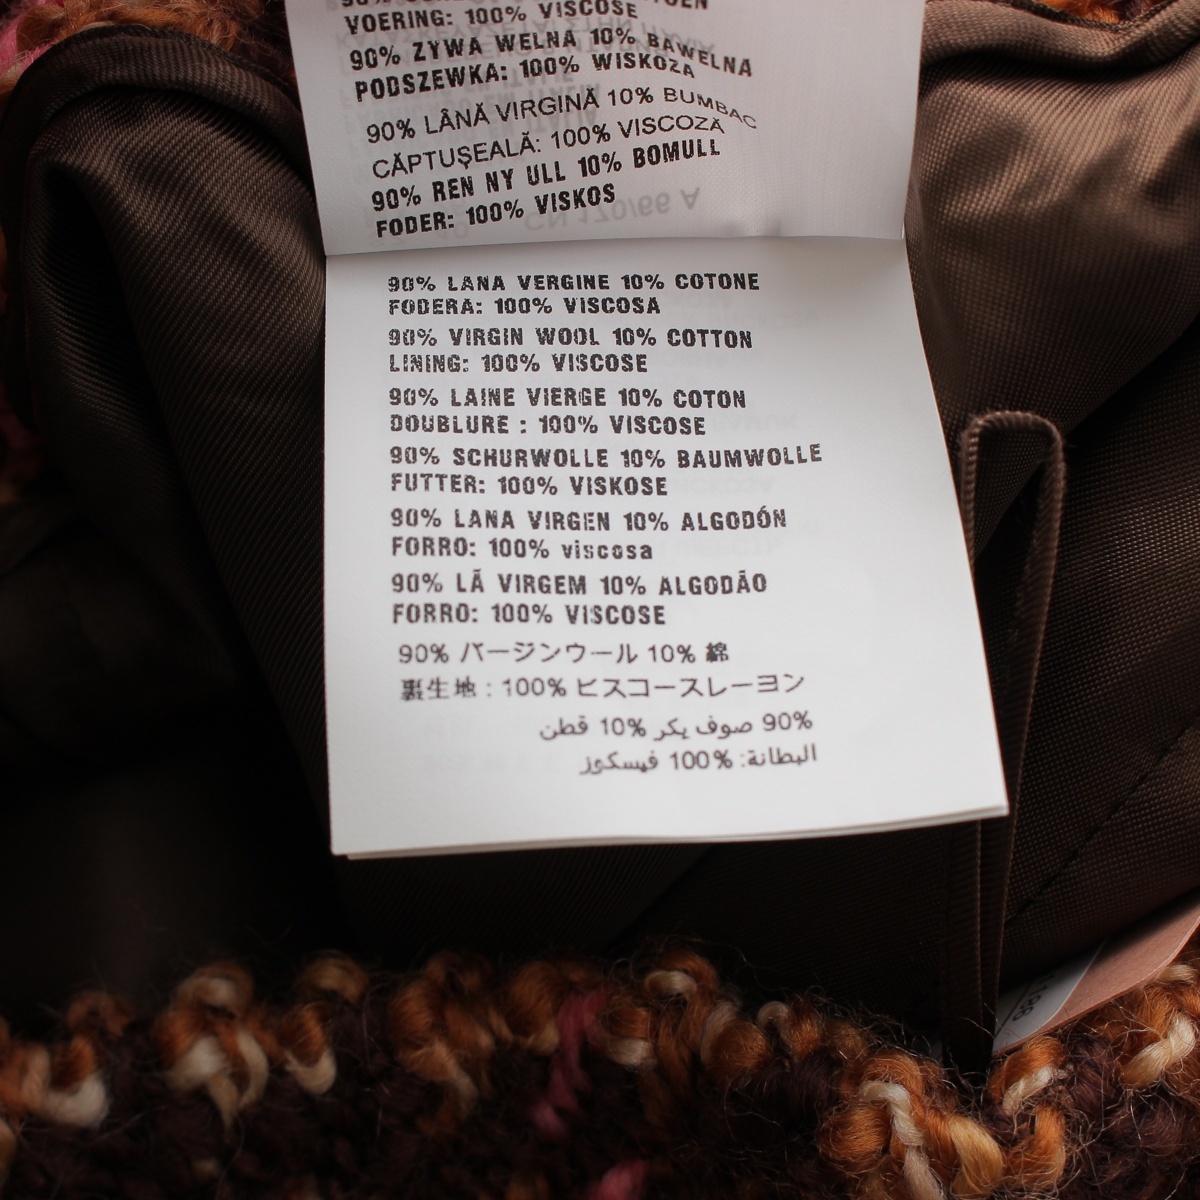 VOERING: 100% VISCOSE
90% ZYWA WELNA 10% BAWELNA
PODSZEWKA: 100% WISKOZA
90% LÂNĂ VIRGINĂ 10% BUMBAC
CĂPTUŞEALĂ: 100% VISCOZĂ
90% REN NY ULL 10% BOMULL
FODER: 100% VISKOS
90% LANA VERGINE 10% COTONE
FODERA: 100% VISCOSA
90% VIRGIN WOOL 10% COTTON
LINING: 100% VISCOSE
90% LAINE VIERGE 10% COTON
DOUBLURE : 100% VISCOSE
90% SCHURWOLLE 10% BAUMWOLLE
FUTTER: 100% VISKOSE
90% LANA VIRGEN 10% ALGODÓN
FORRO: 100% viscosa
90% LÃ VIRGEM 10% ALGODÃO
FORRO: 100% VISCOSE
90% バージンウール 10% 綿
裏生地 : 100% ビスコースレーヨン
90% صوف يكر 10% قطن
البطانة: 100% فيسكوز